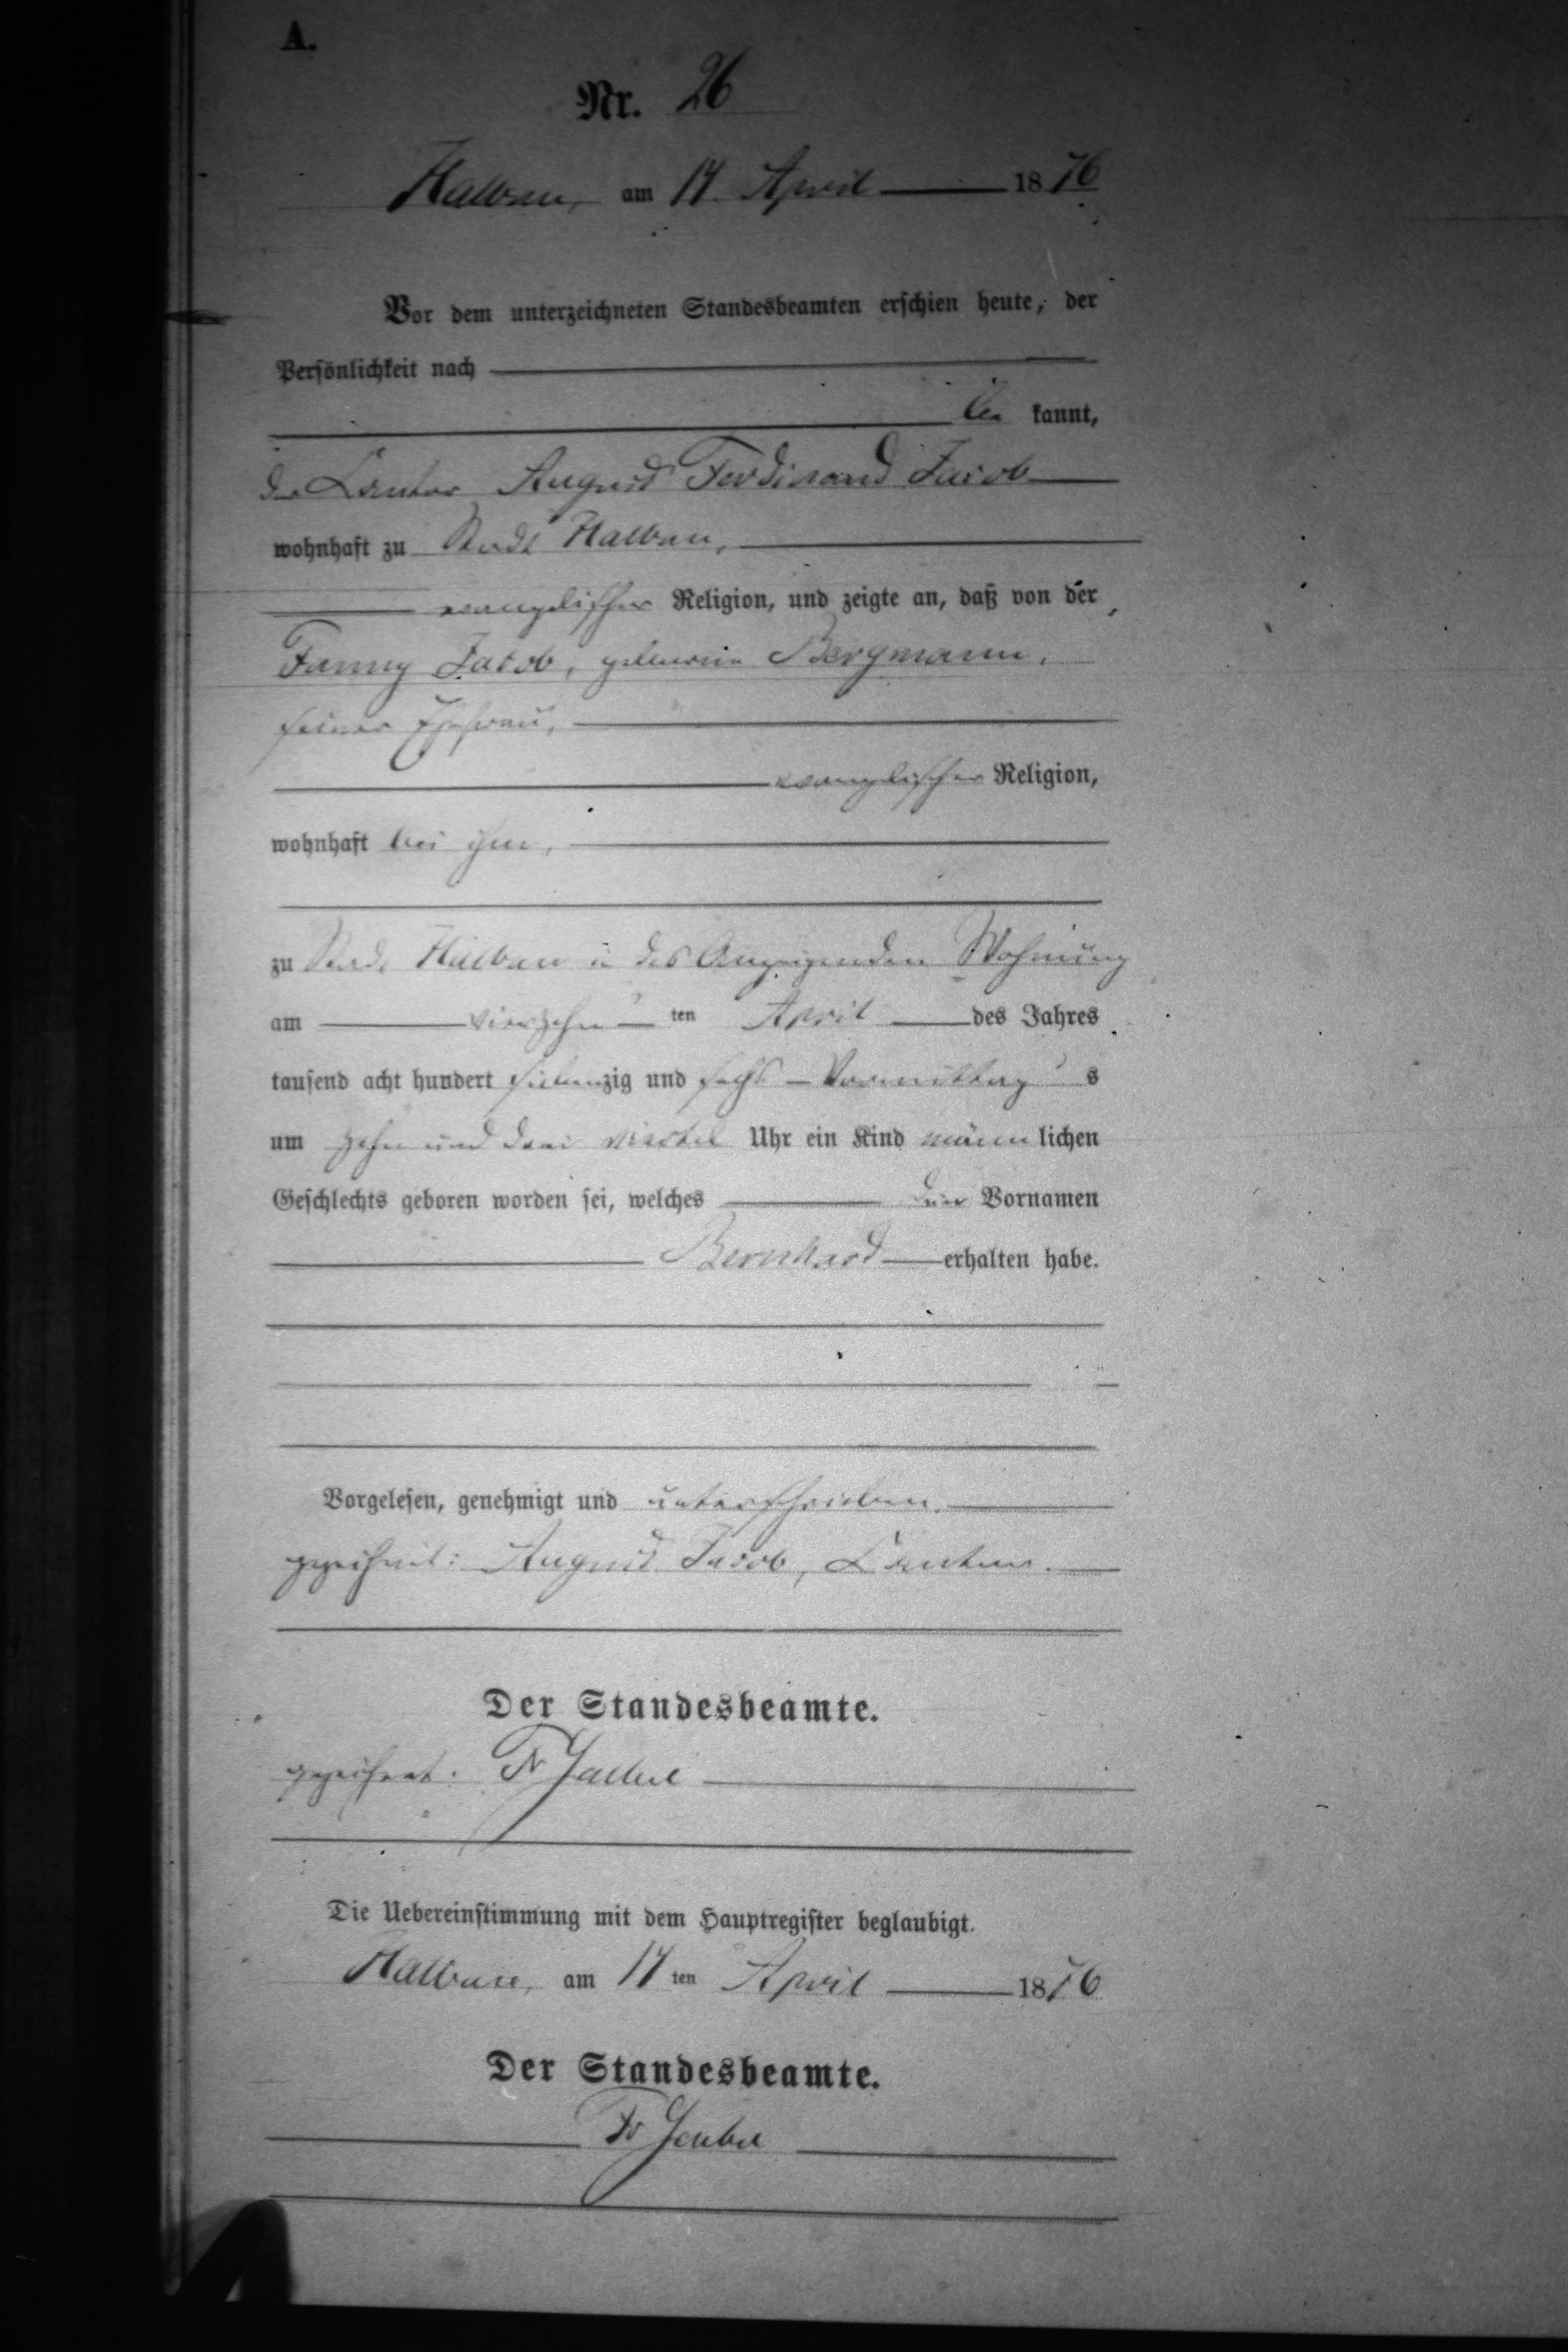 A.
Nr. 26
Halbau, am 14. April 1876
Vor dem unterzeichneten Standesbeamten erschien heute, der
Persönlichkeit nach
be kannt,
der Cantor August Ferdinand Jacob
wohnhaft zu Stadt Halbau,
evangelischer Religion, und zeigte an, daß von der
Fanny Jacob, geborene Bergmann,
seiner Ehefrau,
evangelischer Religion,
wohnhaft bei ihm,
zu Stadt Halbau in des Anzeigenden Wohnung
am vierzehn ten April des Jahres
tausend acht hundert siebenzig und sechs Vormittag s
um zehn und drei viertel Uhr ein Kind männ lichen
Geschlechts geboren worden sei, welches den Vornamen
Bernhard erhalten habe.
Vorgelesen, genehmigt und unterschrieben.
gezeichnet: August Jacob, Cantor.
Der Standesbeamte.
gezeichnet: Fr
Die Uebereinstimmung mit dem Hauptregister beglaubigt.
Halbau, am 14 ten April 1876
Der Standesbeamte.
Fr